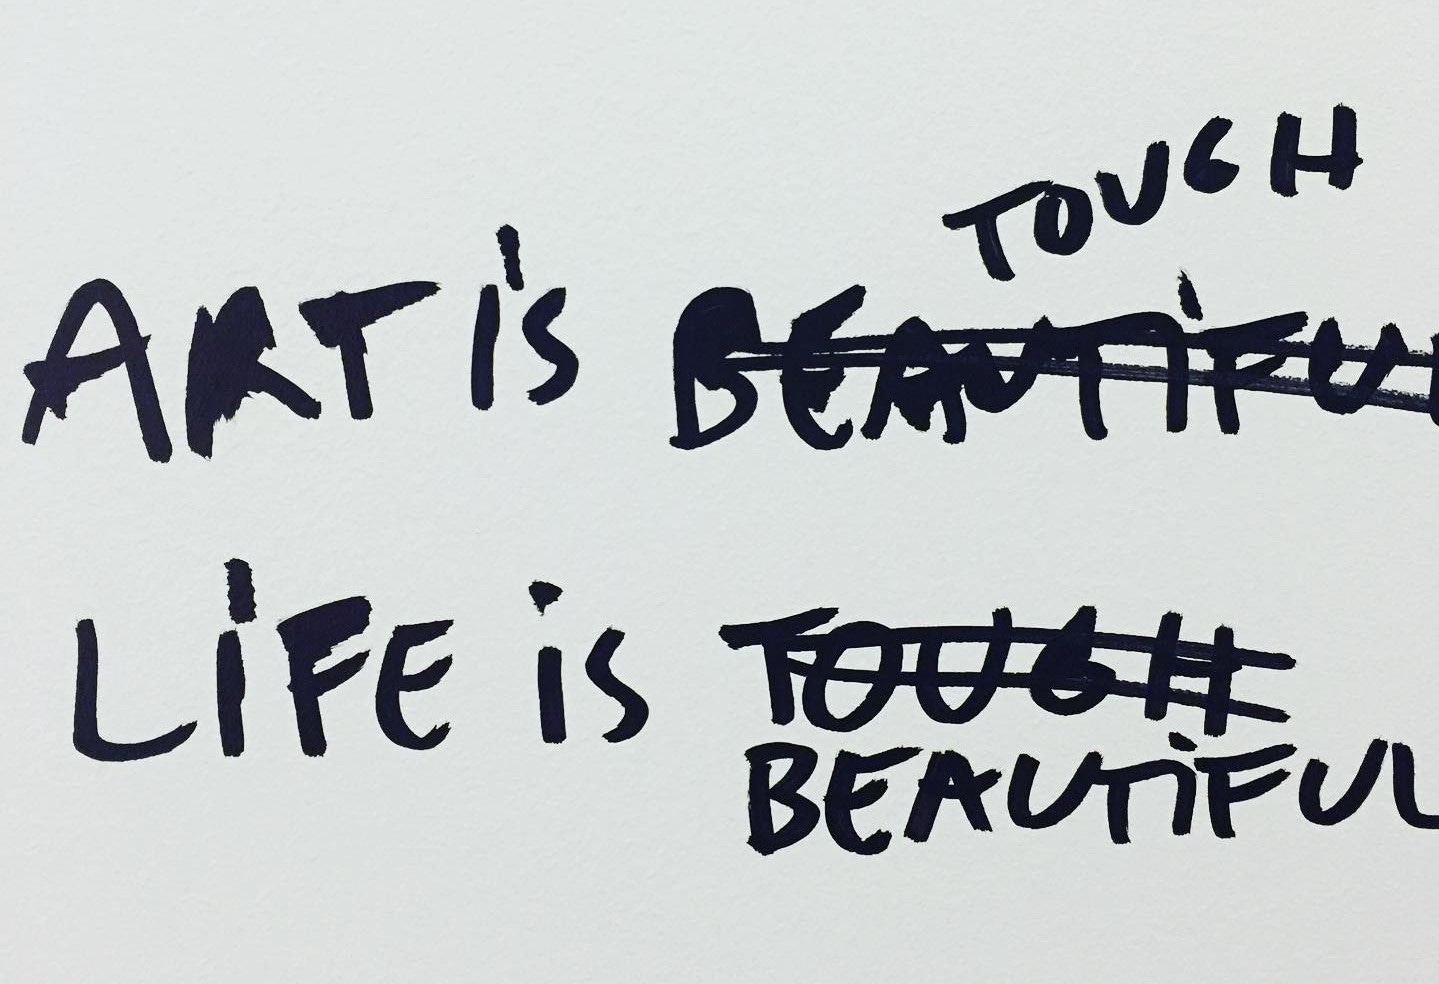 TOUGH
ART is BEAUTiFUL
LiFE is TOUGH
BEAUTiFUL